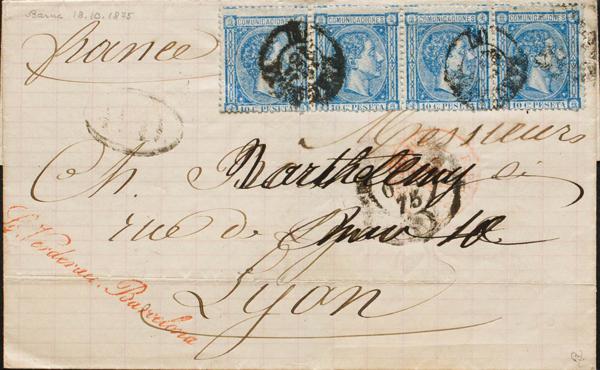 Barna 18.10.1875
COMUNICACIONES COMUNICACIONES COMUNICACIONES COMUNICACIONES
10 Cs PESETA 10 Cs PESETA 10 Cs PESETA 10 Cs PESETA
france
Monsieurs
Ch. Barthelemy &
75
rue de 10
Lyon
Verdereau. Barcelona